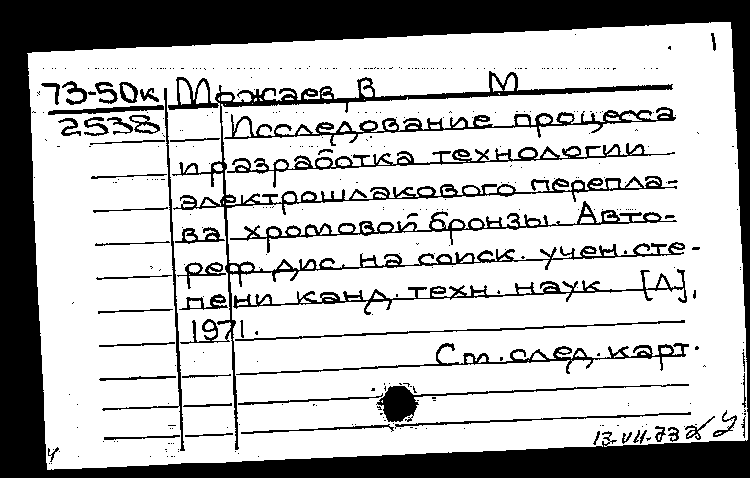 1
73-50к Можаев, В М
2538 Исследование процесса
и разработка технологии
электрошлакового перепла-
ва хромовой бронзы. Авто-
реф. дис. на соиск. учен. сте-
пени канд. техн. наук. [Л],
1971.
См. след. карт.
13-VII-73